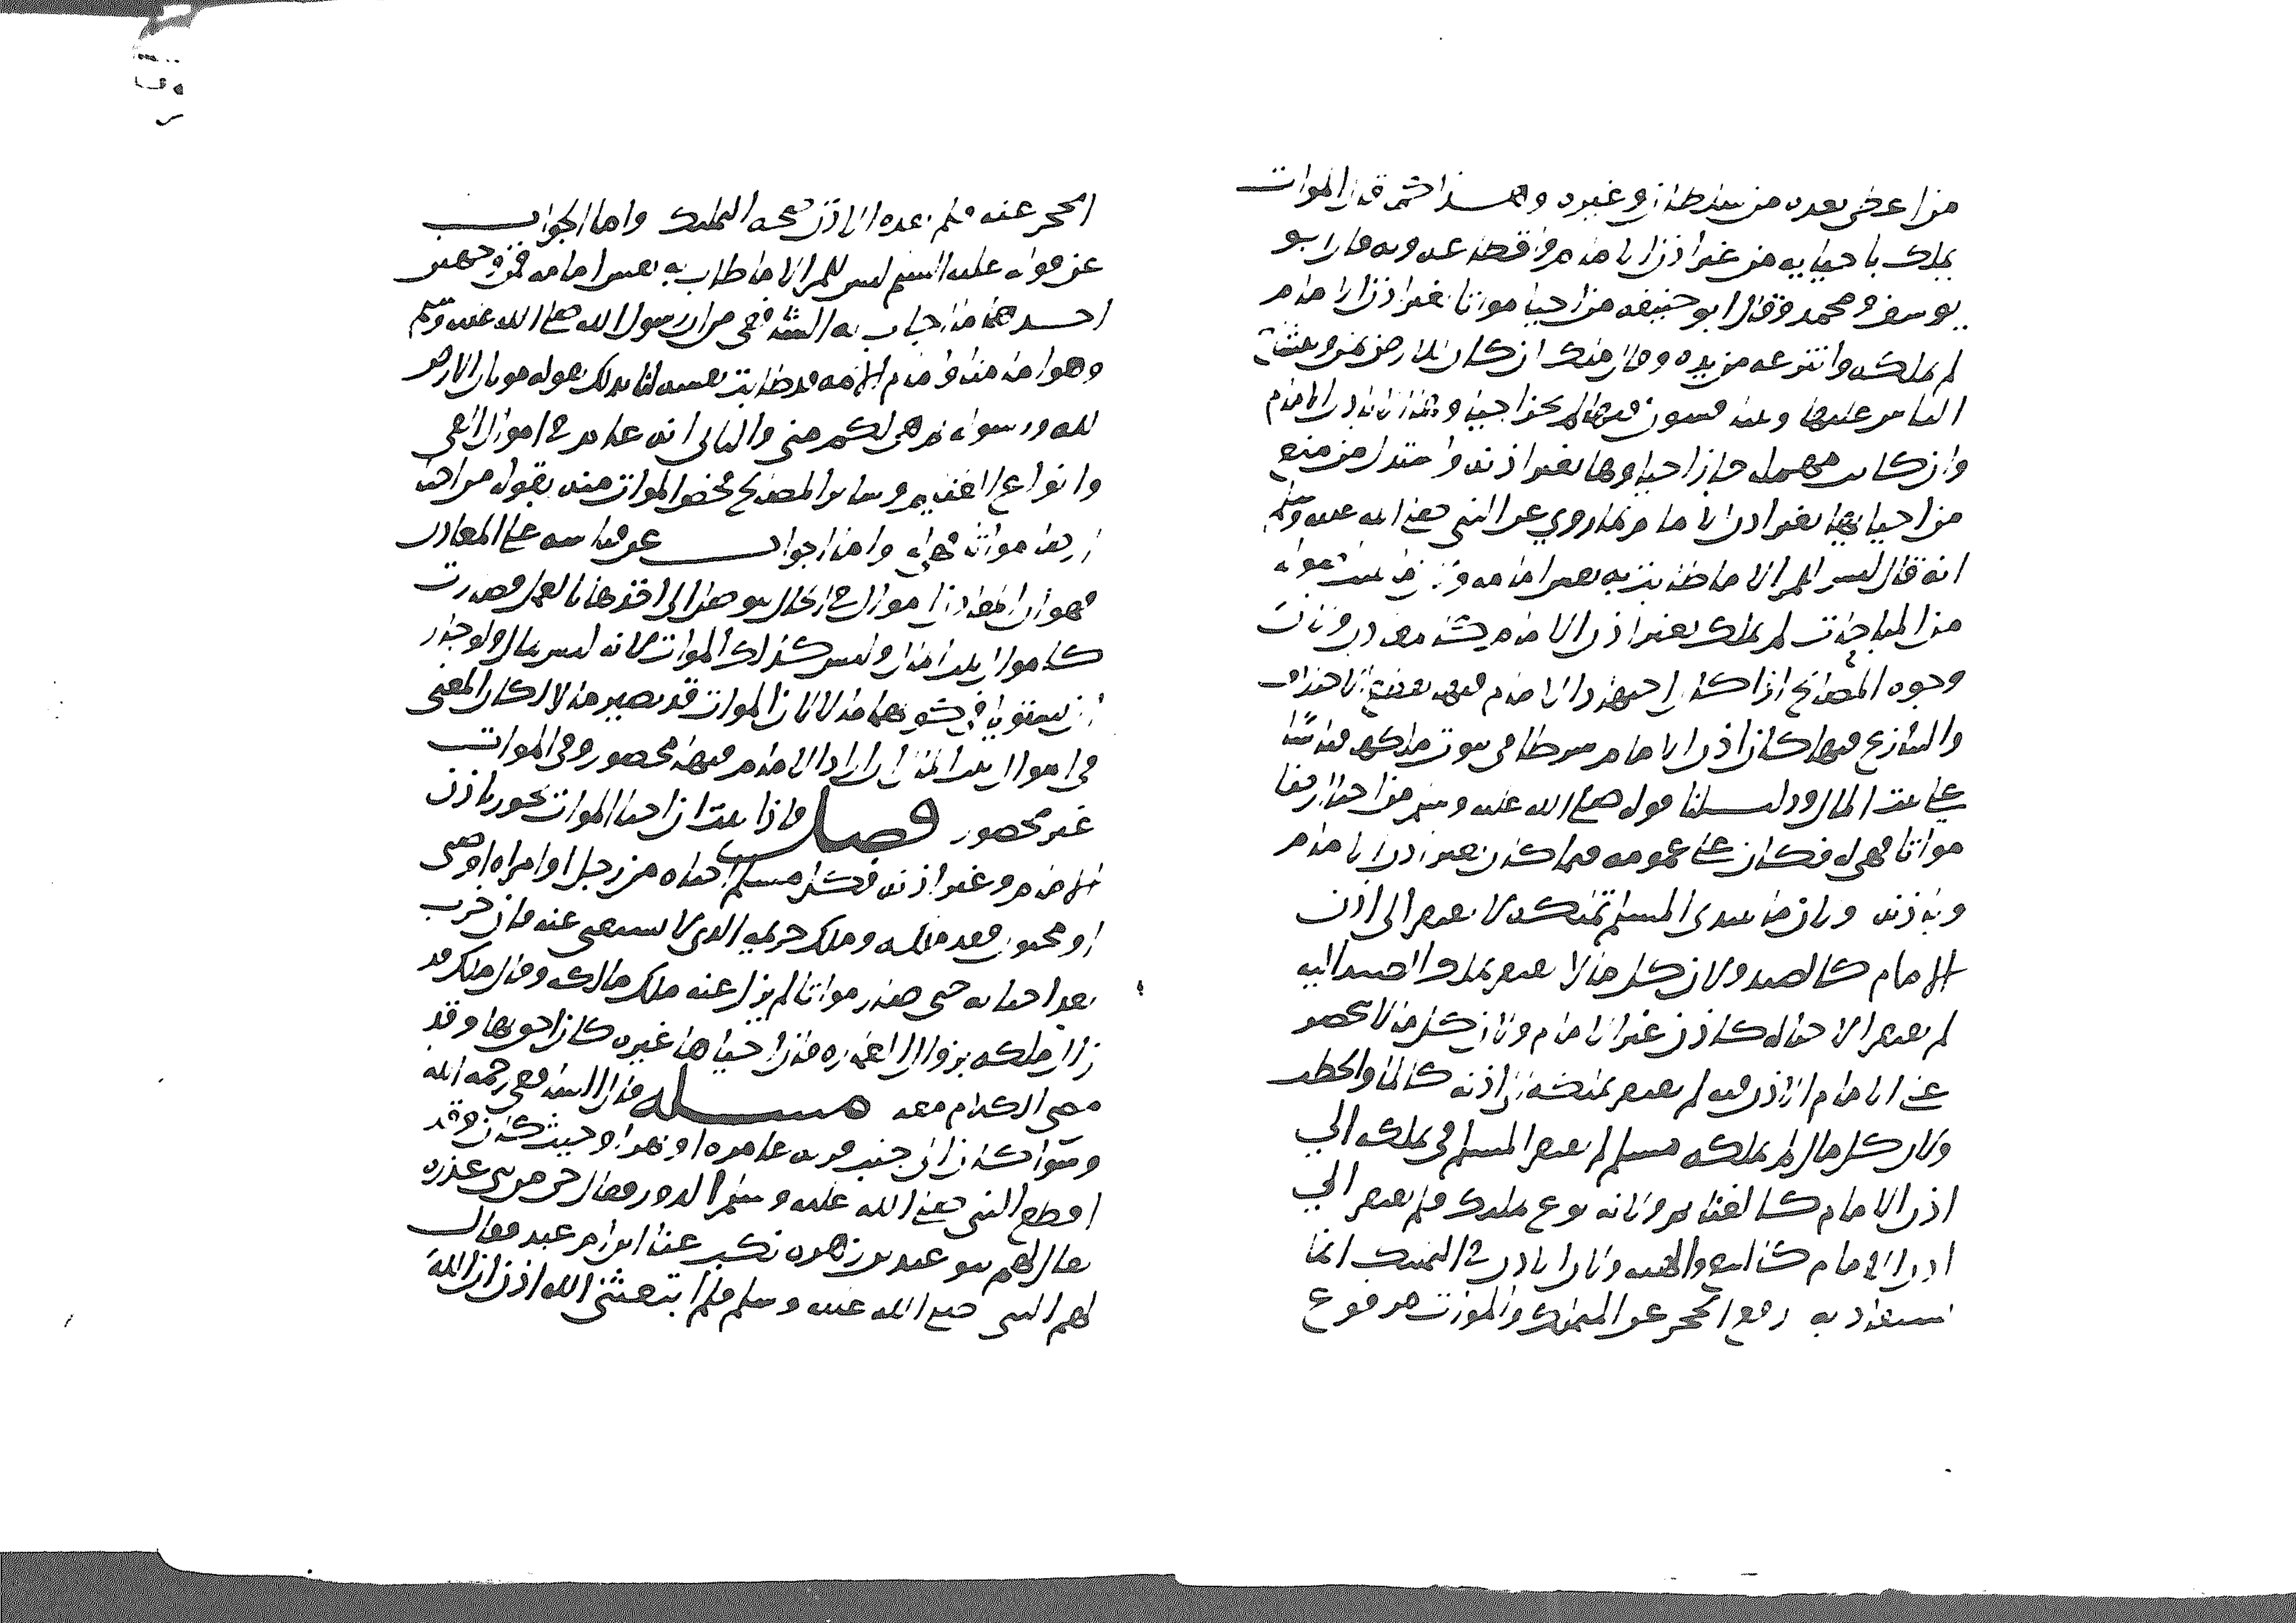 من اعطى بعده من سلطان وغيره وهكذا ثم قال الموات
يملك باحيايه من غير اذن الامام من اقطعه عدوبه قال ابو
يوسف ومحمد وقال ابو حنيفه من احيا مواتا بغير اذن الامام
لم يملكه وانتزعه من يده وقال مالك ان كان الارض
الناس عليها لم يجز احيا الا باذن الامام
وان كانت مهمله جاز احياوها بغير اذنه واستدل من منع
من احيايها بغير اذن الامام بما روي عن النبي صلى الله عليه وسلم
انه قال ليس للمر الا ما طابت به نفس امامه
من المباحات لم يملك بغير اذن الامام
وجوه المصالح اذا كان اجتهاد الامام فيها
والتنازع فيها كان اذن الامام شرطا في ثبوت ملكها قياسا
على بيت المال ودليلنا قوله صلى الله عليه وسلم من احيا ارضا
مواتا فهي له فكان على عمومه فيما كان بغير اذن الامام
وباذنه ولان ما يبتدي المسلم تملكه لا يفتقر الى اذن
الامام كالصيد ولان كل ما لا يفتقر تملك الصيد اليه
لم يفتقر الاحيا له كاذن غير الامام ولان كل ما لا يحصر
على الامام الاذن فيه لم يفتقر تملكه الى اذنه كالما والحطب
ولان كل مال لم يملكه مسلم لم يفتقر المسلم في تملكه الي
اذن الامام كالغنايم ولانه نوع تمليك فلم يفتقر الي
اذن الامام كالبيع والهبه ولان الاذن في التمليك انما
يستفاد به رفع الحجر عن المتملك والموات مرفوع
الحجر عنه فلم يفده الاذن صحه التملك واما الجواب
عن قوله عليه السلم ليس للمر الا ما طاب به نفس امامه فمن وجهين
احدهما ما اجاب به الشافعي من ان رسول الله صلى الله عليه وسلم
وهو امامنا وامام الايمه قد طابت نفسه لنا بذلك بقوله موتان الارض
لله ورسوله ثم هي لكم مني والثاني انه عام في اموال الفي
وانواع الغنايم وساير المصالح فخص الموات منه بقوله من احيا
ارضا مواتا فهي له واما الجواب عن قياسه على المعادن
فهو ان المعادن اموال في الحال يتوصل الى اخذها بالعمل فصارت
كاموال بيت المال وليس كذلك الموات لانه ليس بمال ولو جاز
ان يستويا في كونهما مالا لان الموات قد يصير مالا لكان المعنى
في اموال بيت المال ان اذن الامام فيها محصور وفي الموات
غير محصور فصل فاذا ثبت ان احيا الموات يجوز باذن
الامام وغير اذنه فكل مسلم احياه من رجل او امراه او صبي
او مجنون فقد ملكه وملك حريمه الذي لا يستغنى عنه فان خرب
بعد احيايه حتى صار مواتا لم يزل عنه ملك مالكه وقال مالك قد
زال ملكه بزوال العماره فان احياها غيره كان احق بها وقد
مضى الكلام معه مسله قال الشافعي رحمه الله
وسوا كان الى جنب قريه عامره او نهر او حيث كان وقد
اقطع النبي صلى الله عليه وسلم الدور فقال حي من بني عذره
يقال لهم بنو عبد بن زهره نكب عنا ابن ام عبد فقال
لهم النبي صلى الله عليه وسلم فلم ابتعثني الله اذن ان الله